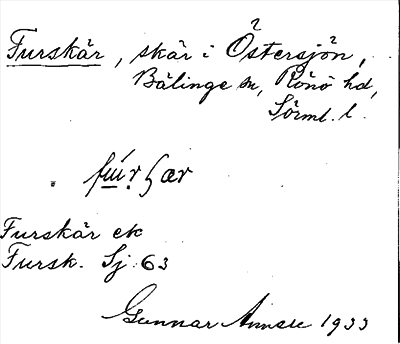 Furskär, skär i Östersjön,
Bälinge sn, Rönö hd,
Sörml. l.
Furskär ek
Fursk. Sj 63
Gunnar 1933